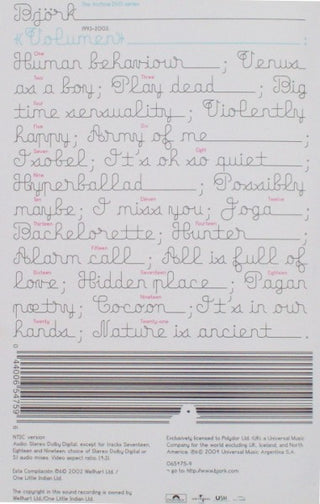 The Archive DVD series
Björk
1993-2003
《Volumen》 ;
One
Human behaviour ; Venus
Two Three
as a boy; Play dead ; Big
Four
time sensuality ; Violently
Five Six
happy; Army of me ;
Seven Eight
Isobel; It's oh so quiet ;
Nine
Hyperballad ; Possibly
Ten Eleven Twelve
maybe; I miss you; Joga ;
Thirteen Fourteen
Bachelorette; Hunter ;
Fifteen
Alarm call ; All is full of
Sixteen Seventeen Eighteen
love; Hidden place ; Pagan
Nineteen
poetry; Cocoon ; It's in our
Twenty Twenty-one
hands ; Nature is ancient .
NTSC version
Audio: Stereo Dolby Digital, except for tracks Seventeen,
Eighteen and Nineteen: choice of Stereo Dolby Digital or
5.1 audio mixes. Video aspect ratio: 1.3:1.
Esta Compilación ℗© 2002 Wellhart Ltd./
One Little Indian Ltd.
The copyright in this sound recording is owned by
Wellhart Ltd/One Little Indian Ltd.
Exclusively licensed to Polydor Ltd. (UK) a Universal Music
Company for the world excluding UK, Iceland, and North
America. ℗© 2004 Universal Music Argentina S.A.
065475-9
> go to: http://www.bjork.com